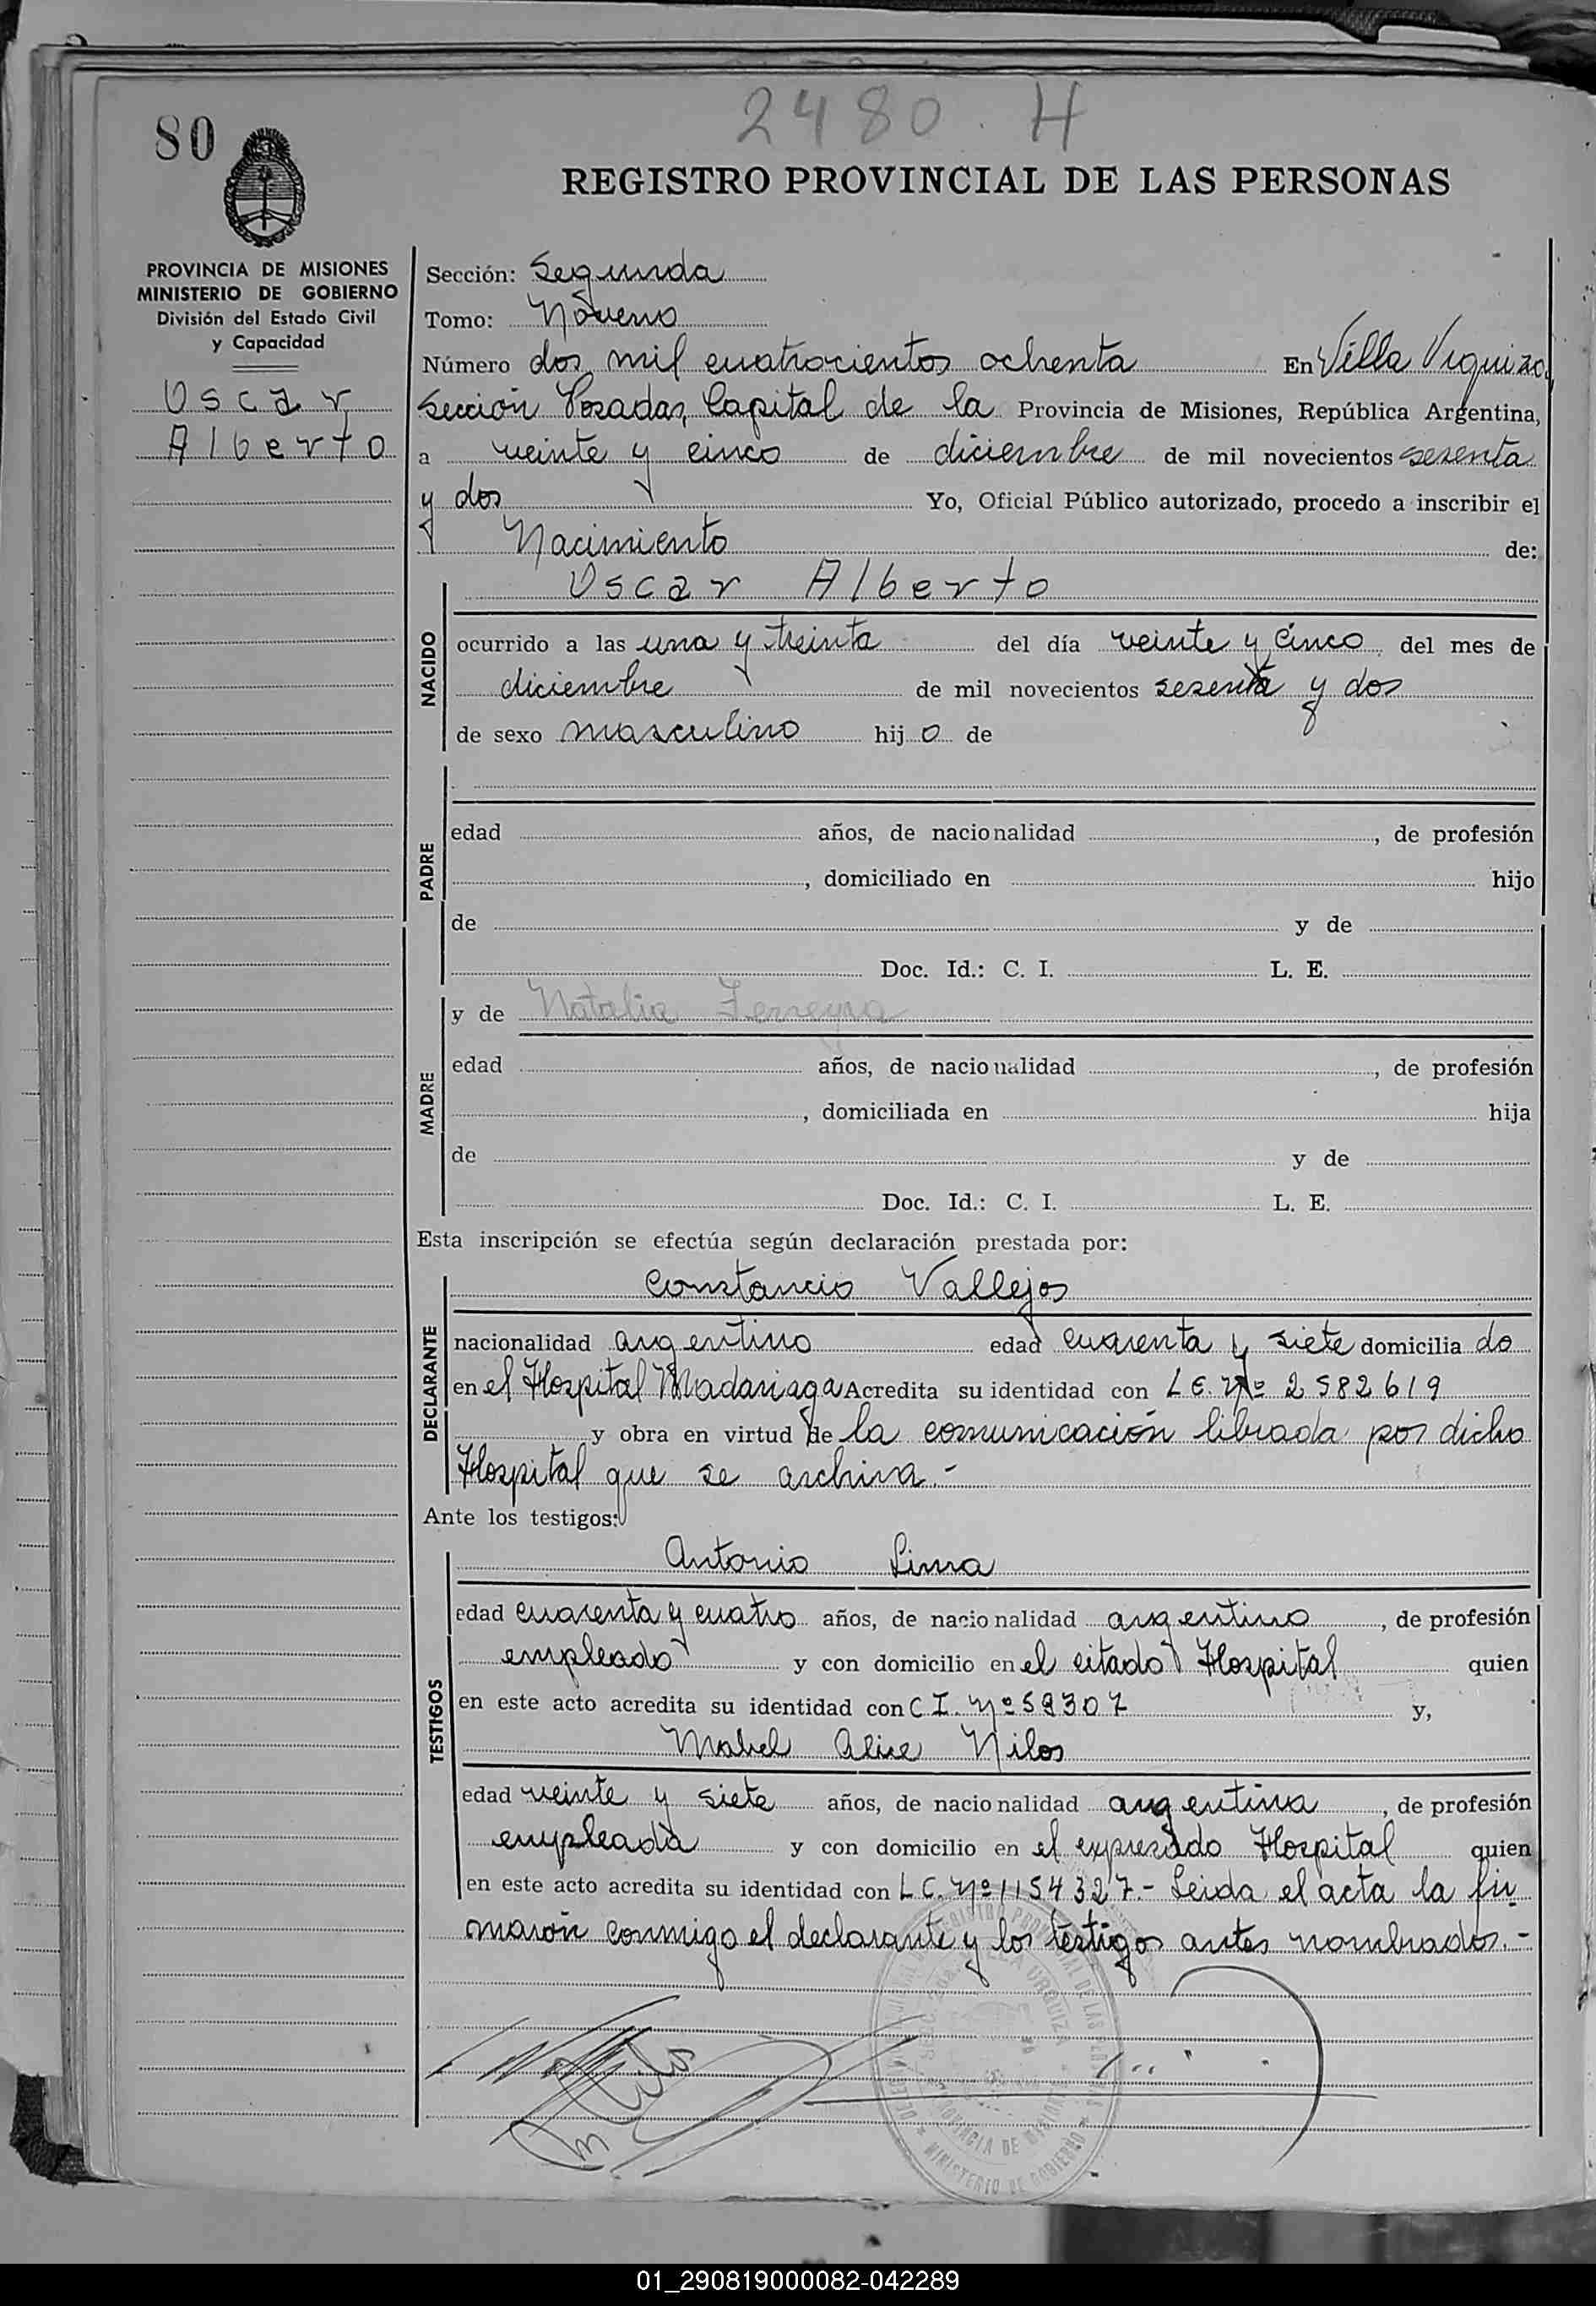 2480. H
80
REGISTRO PROVINCIAL DE LAS PERSONAS
PROVINCIA DE MISIONES
MINISTERIO DE GOBIERNO
División del Estado Civil
y Capacidad
Oscar
Alberto
Sección: Segunda
Tomo: Noveno
Número dos mil cuatrocientos ochenta En Villa Urquiza
Sección Posadas, Capital de la Provincia de Misiones, República Argentina,
a veinte y cinco de diciembre de mil novecientos sesenta
y dos Yo, Oficial Público autorizado, procedo a inscribir el
Nacimiento de:
Oscar Alberto
NACIDO
ocurrido a las una y treinta del día veinte y cinco del mes de
diciembre de mil novecientos sesenta y dos
de sexo masculino hijo de
PADRE
edad años, de nacionalidad , de profesión
, domiciliado en hijo
de y de
Doc. Id.: C. I. L. E.
MADRE
y de Natalia Ferreyra
edad años, de nacionalidad , de profesión
, domiciliada en hija
de y de
Doc. Id.: C. I. L. E.
Esta inscripción se efectúa según declaración prestada por:
DECLARANTE
Constancio Vallejos
nacionalidad argentino edad cuarenta y siete domicilia do
en el Hospital Madariaga Acredita su identidad con L E. Nº 2582619
y obra en virtud de la comunicación librada por dicho
Hospital que se archiva.-
Ante los testigos:
TESTIGOS
Antonio Lima
edad cuarenta y cuatro años, de nacionalidad argentino, de profesión
empleado y con domicilio en el citado Hospital quien
en este acto acredita su identidad con C I. Nº 59307 y,
Mabel Alice Nilos
edad veinte y siete años, de nacionalidad argentina, de profesión
empleada y con domicilio en el expresado Hospital quien
en este acto acredita su identidad con L C. Nº 1154327.- Leida el acta la fir
maron conmigo el declarante y los testigos antes nombrados.-
01_290819000082-042289